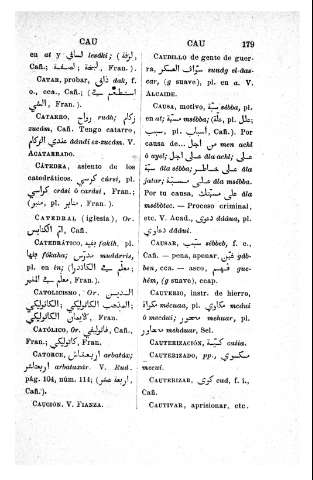 CAU
en at y لساقي lesâki; (لزقة,
Cañ.; لصقة, لبخة, Fran.).
CATAR, probar, ذاق dak, f.
o, cca., Cañ. (— استطعم
الشي, Fran.).
CATARRO, رواح rudh; زكام
zucâm, Cañ. Tengo catarro,
عندي الزكام dândi ez-zucâm. V.
ACATARRADO.
CÁTEDRA, asiento de los
catedráticos. كرسي cúrsi, pl.
كراسي crási ó carâsi, Fran.;
منبر, pl. منابر, Fran.).
CATEDRAL (iglesia), Or.
ام الكنايس, Cañ.
CATEDRÁTICO, فقيه fakih, pl.
فقها fókaha; مدرس mudárris,
pl. en in; (معلم في الكاتدرا;
معلم في المنبر, Fran.).
CATOLICISMO, Or. الدين
الكاثوليكي; المذهب الكاثوليكي;
الايمان الكاثوليكي, Fran.
CATÓLICO, Or. قاثوليقي, Cañ.,
كاثوليكي, Fran.
CATORCE, اربعتاش arbatâx;
اربعتاشر arbatâxar. V. Rud.
pág. 104, núm. 114; (اربعة عشر,
Cañ.).
CAUCIÓN. V. FIANZA.
CAU 179
CAUDILLO de gente de guerra,
سواق العسكر suuâg el-âascar,
(g suave), pl. en a. V.
ALCAIDE.
CAUSA, motivo, سبة sébba, pl.
en at; مسبة msébba; علة, pl. علل;
سبب, pl. اسباب, Cañ.). Por
causa de... من اجل men achl
ó ayel; على اجل âla achl; على
سبة âla sébba; على خاطر âla
jatar; على مسبة âla msébba.
Por tu causa, على مسبتك âla
msébbtec. — Proceso criminal,
etc. V. Acad., دعوى dáâua, pl.
دعاوي dáâui.
CAUSAR, سبب sébbeb, f. e,
Cañ. — pena, apenar, غبن gábben,
cca. — asco, guehém,
(g suave), ccap.
CAUTERIO, instr. de hierro,
مكواة mécuaa, pl. مكاوي mcáui
ó mecáui; محور mehuar, pl.
محاور mehauar, Sel.
CAUTERIZACIÓN, كية cuiia.
CAUTERIZADO, pp., مكوي
mecui.
CAUTERIZAR, كوى cud, f. i.,
Cañ.
CAUTIVAR, aprisionar, etc.